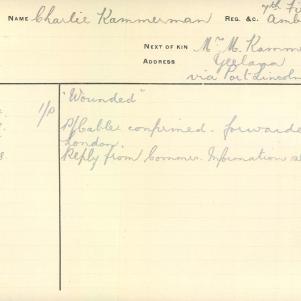 NAME Charlie Kammerman REG. &C. 7th Fi
Amb
NEXT OF KIN Mrs M. Kamm
ADDRESS Yeelanna
via Port Lincoln
1/P "Wounded"
confirmed. forwarde
London.
Reply from Commr. Information s